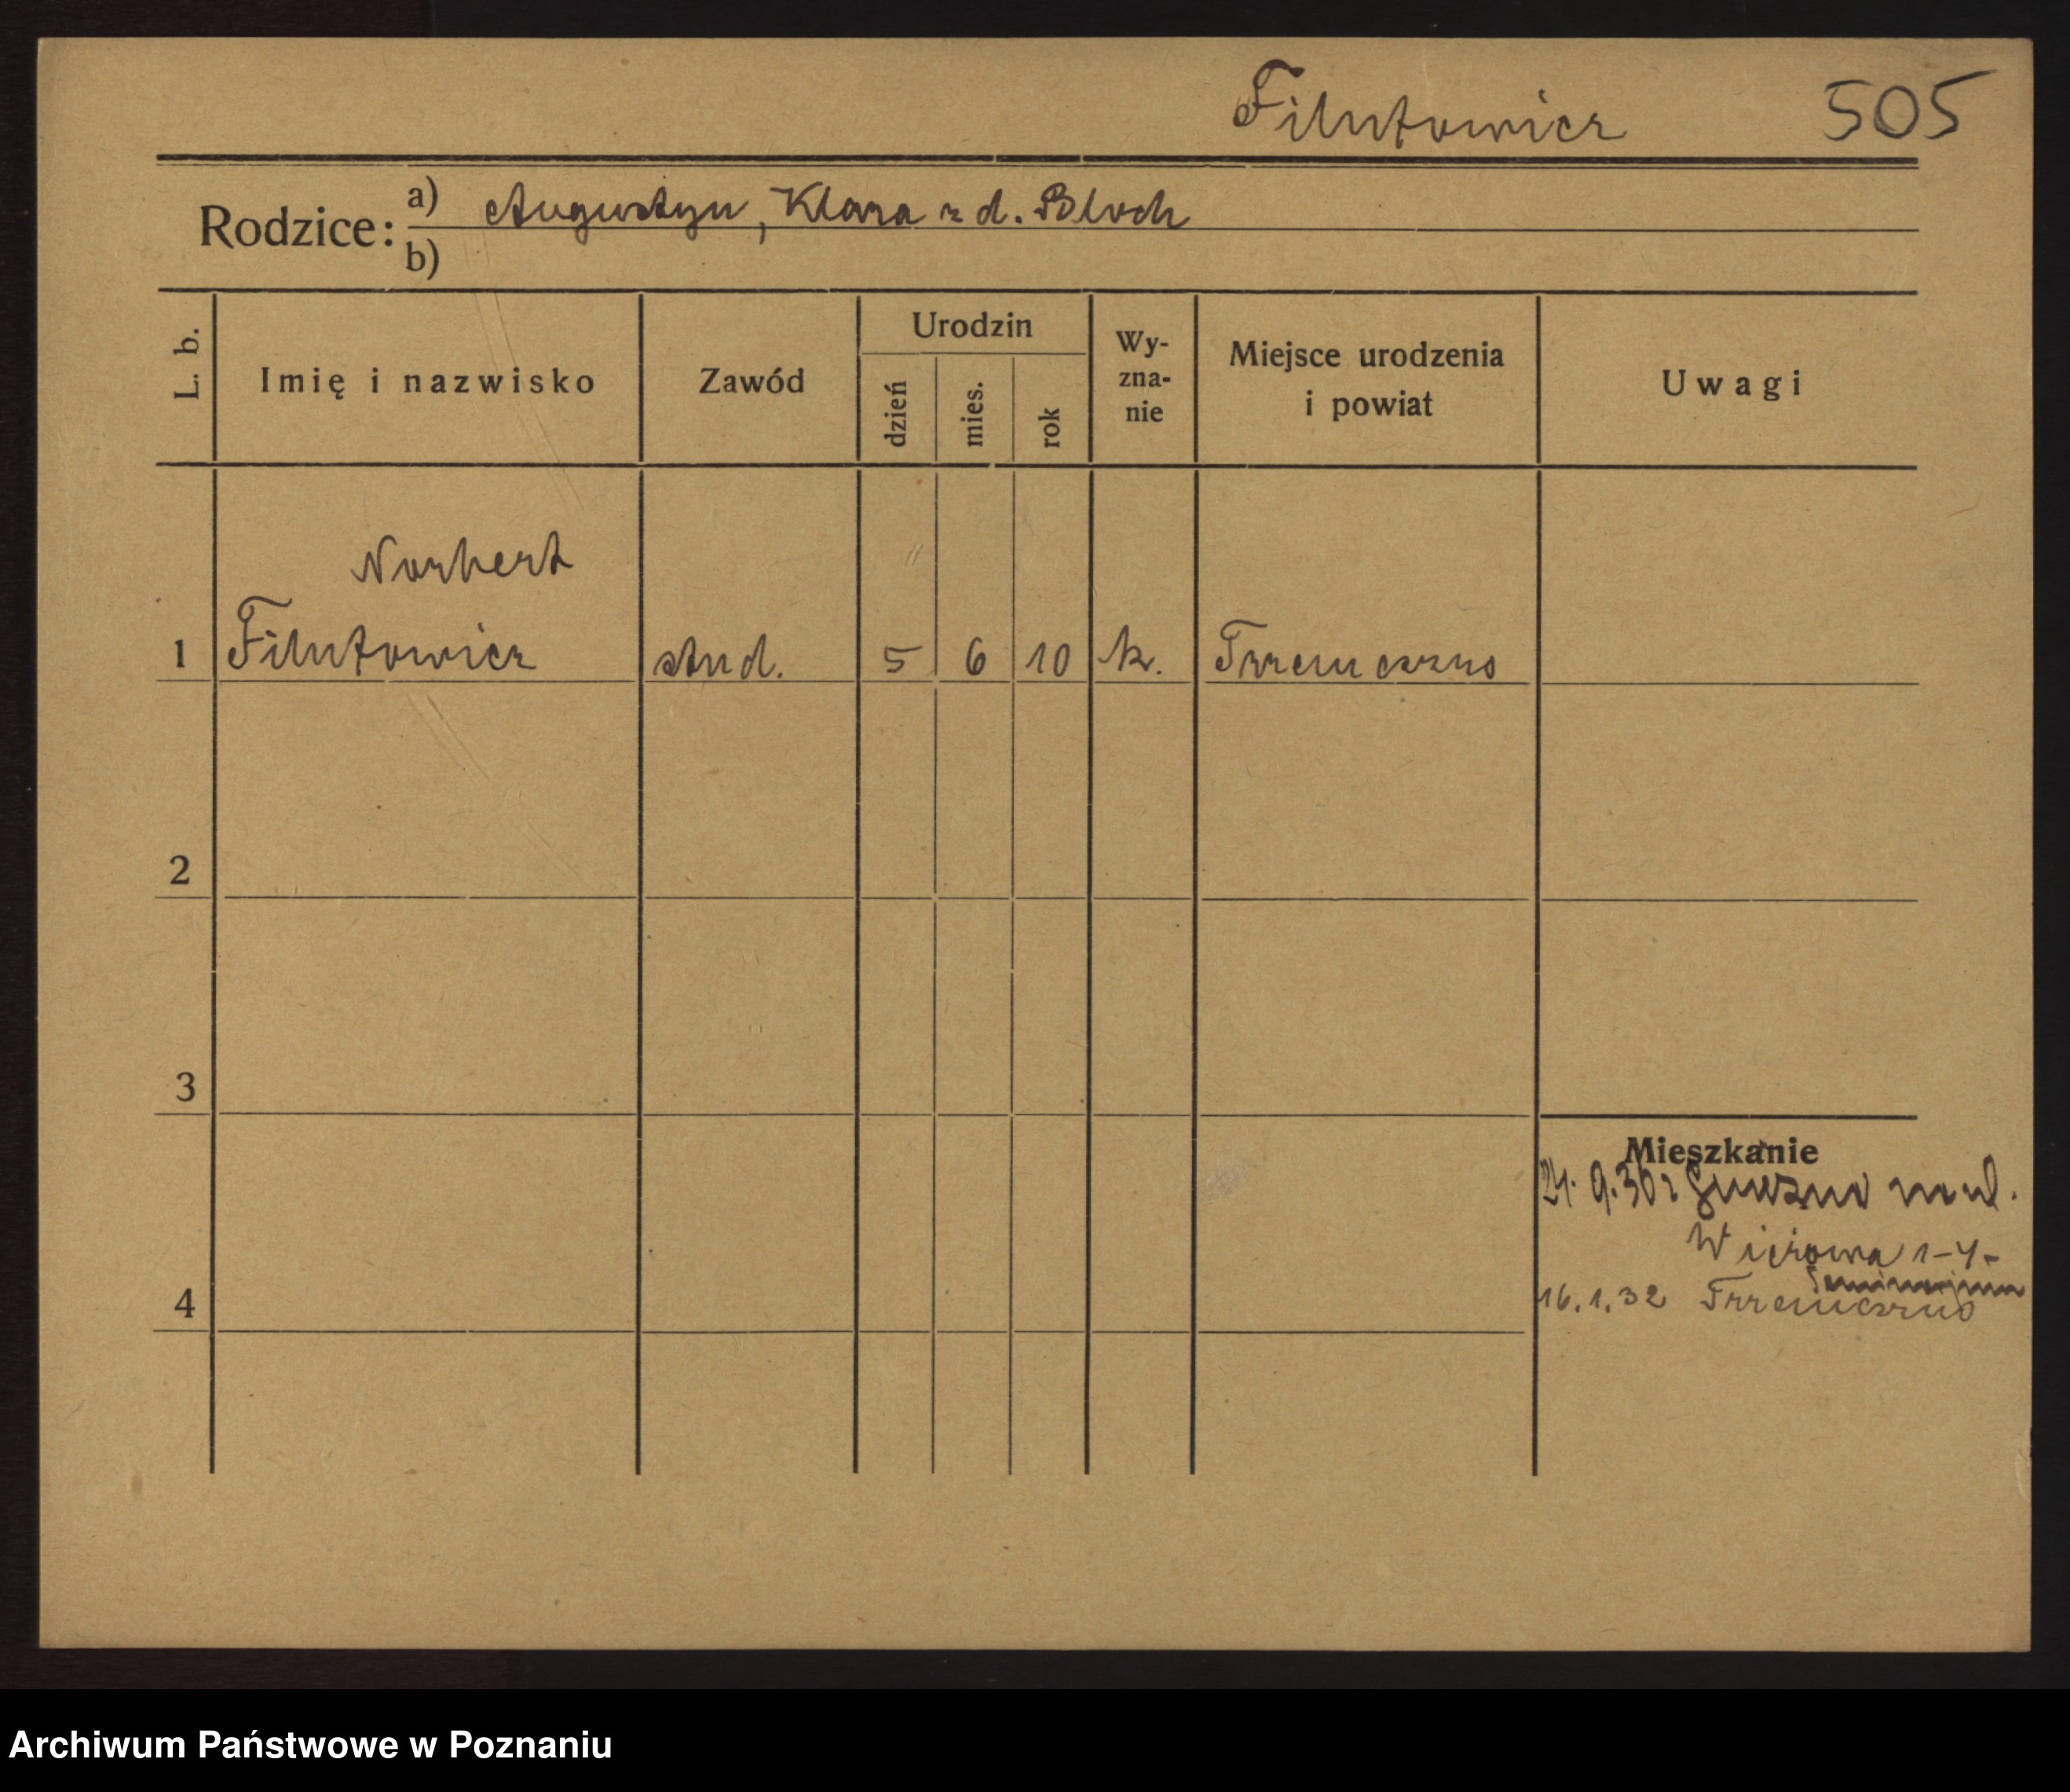 Filutowicz 505
Rodzice: a) Augustyn, Klara z d. Bloch
b)
L. b. Imię i nazwisko Zawód Urodzin dzień mies. rok Wy-zna-nie Miejsce urodzenia i powiat Uwagi
Norbert
1 Filutowicz stud. 5 6 10 k. Trzemeszno
2
3
Mieszkanie
9.30 Gniezno
1-4-
4
16.1.32 Trzemeszno
Archiwum Państwowe w Poznaniu